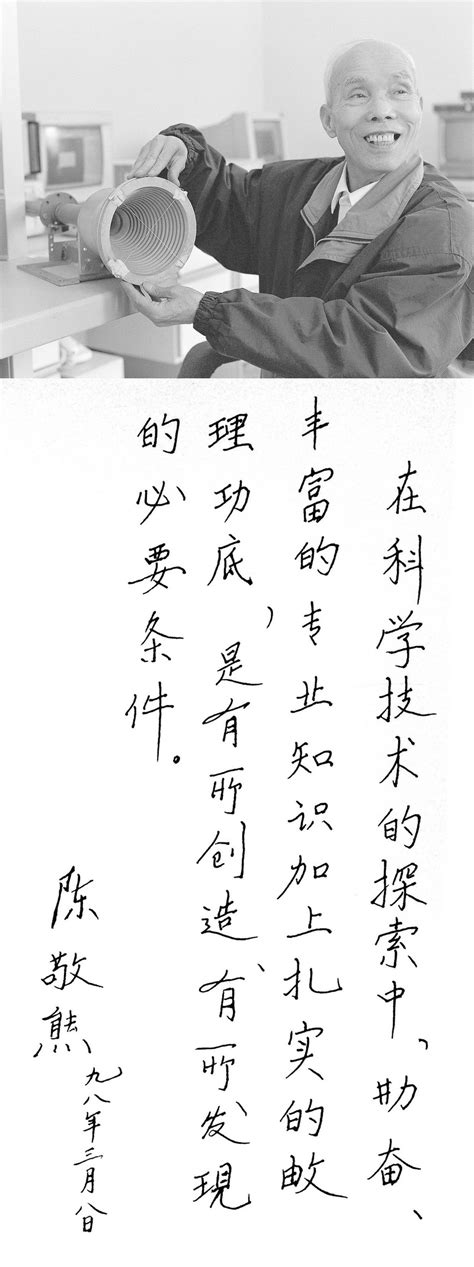 在科学技术的探索中、勤奋、
丰富的专业知识加上扎实的数
理功底，是有所创造、有所发现
的必要条件。
陈敬熊
九八年三月八日